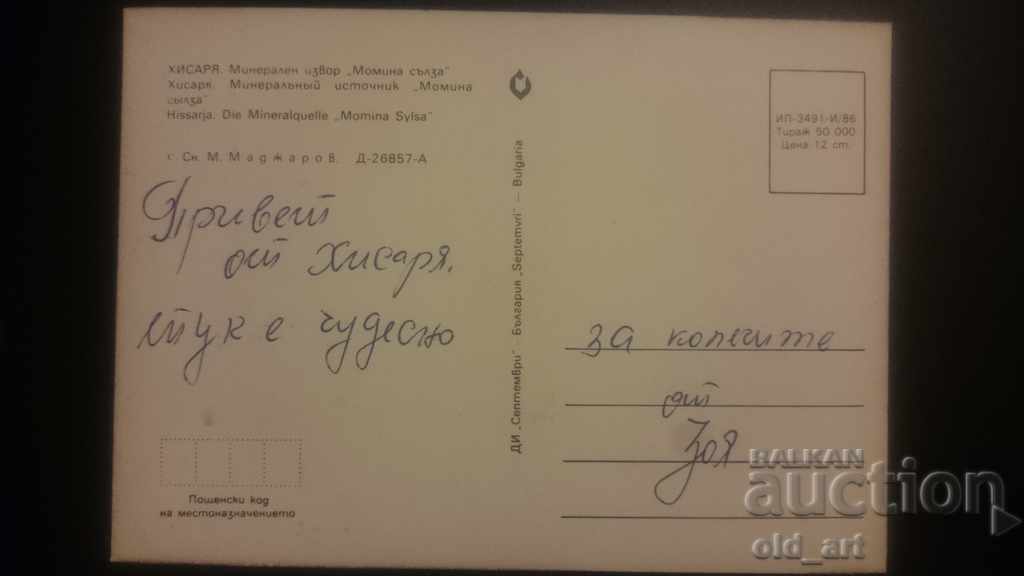 ХИСАРЯ. Минерален извор „Момина сълза"
Хисаря. Минеральный источник „Момина
сылза"
Hissarja. Die Mineralquelle „Momina Sylsa"
г. Сн. М. Маджаров. Д-26857-А
Привет
от Хисаря.
тук е чудесно
Пощенски код
на местоназначението
ДИ „Септември" — България „Septemvri" — Bulgaria
ИП-3491-И/86
Тираж 50 000
Цена 12 ст.
за колегите
от
Зоя
BALKAN
auction
old_art